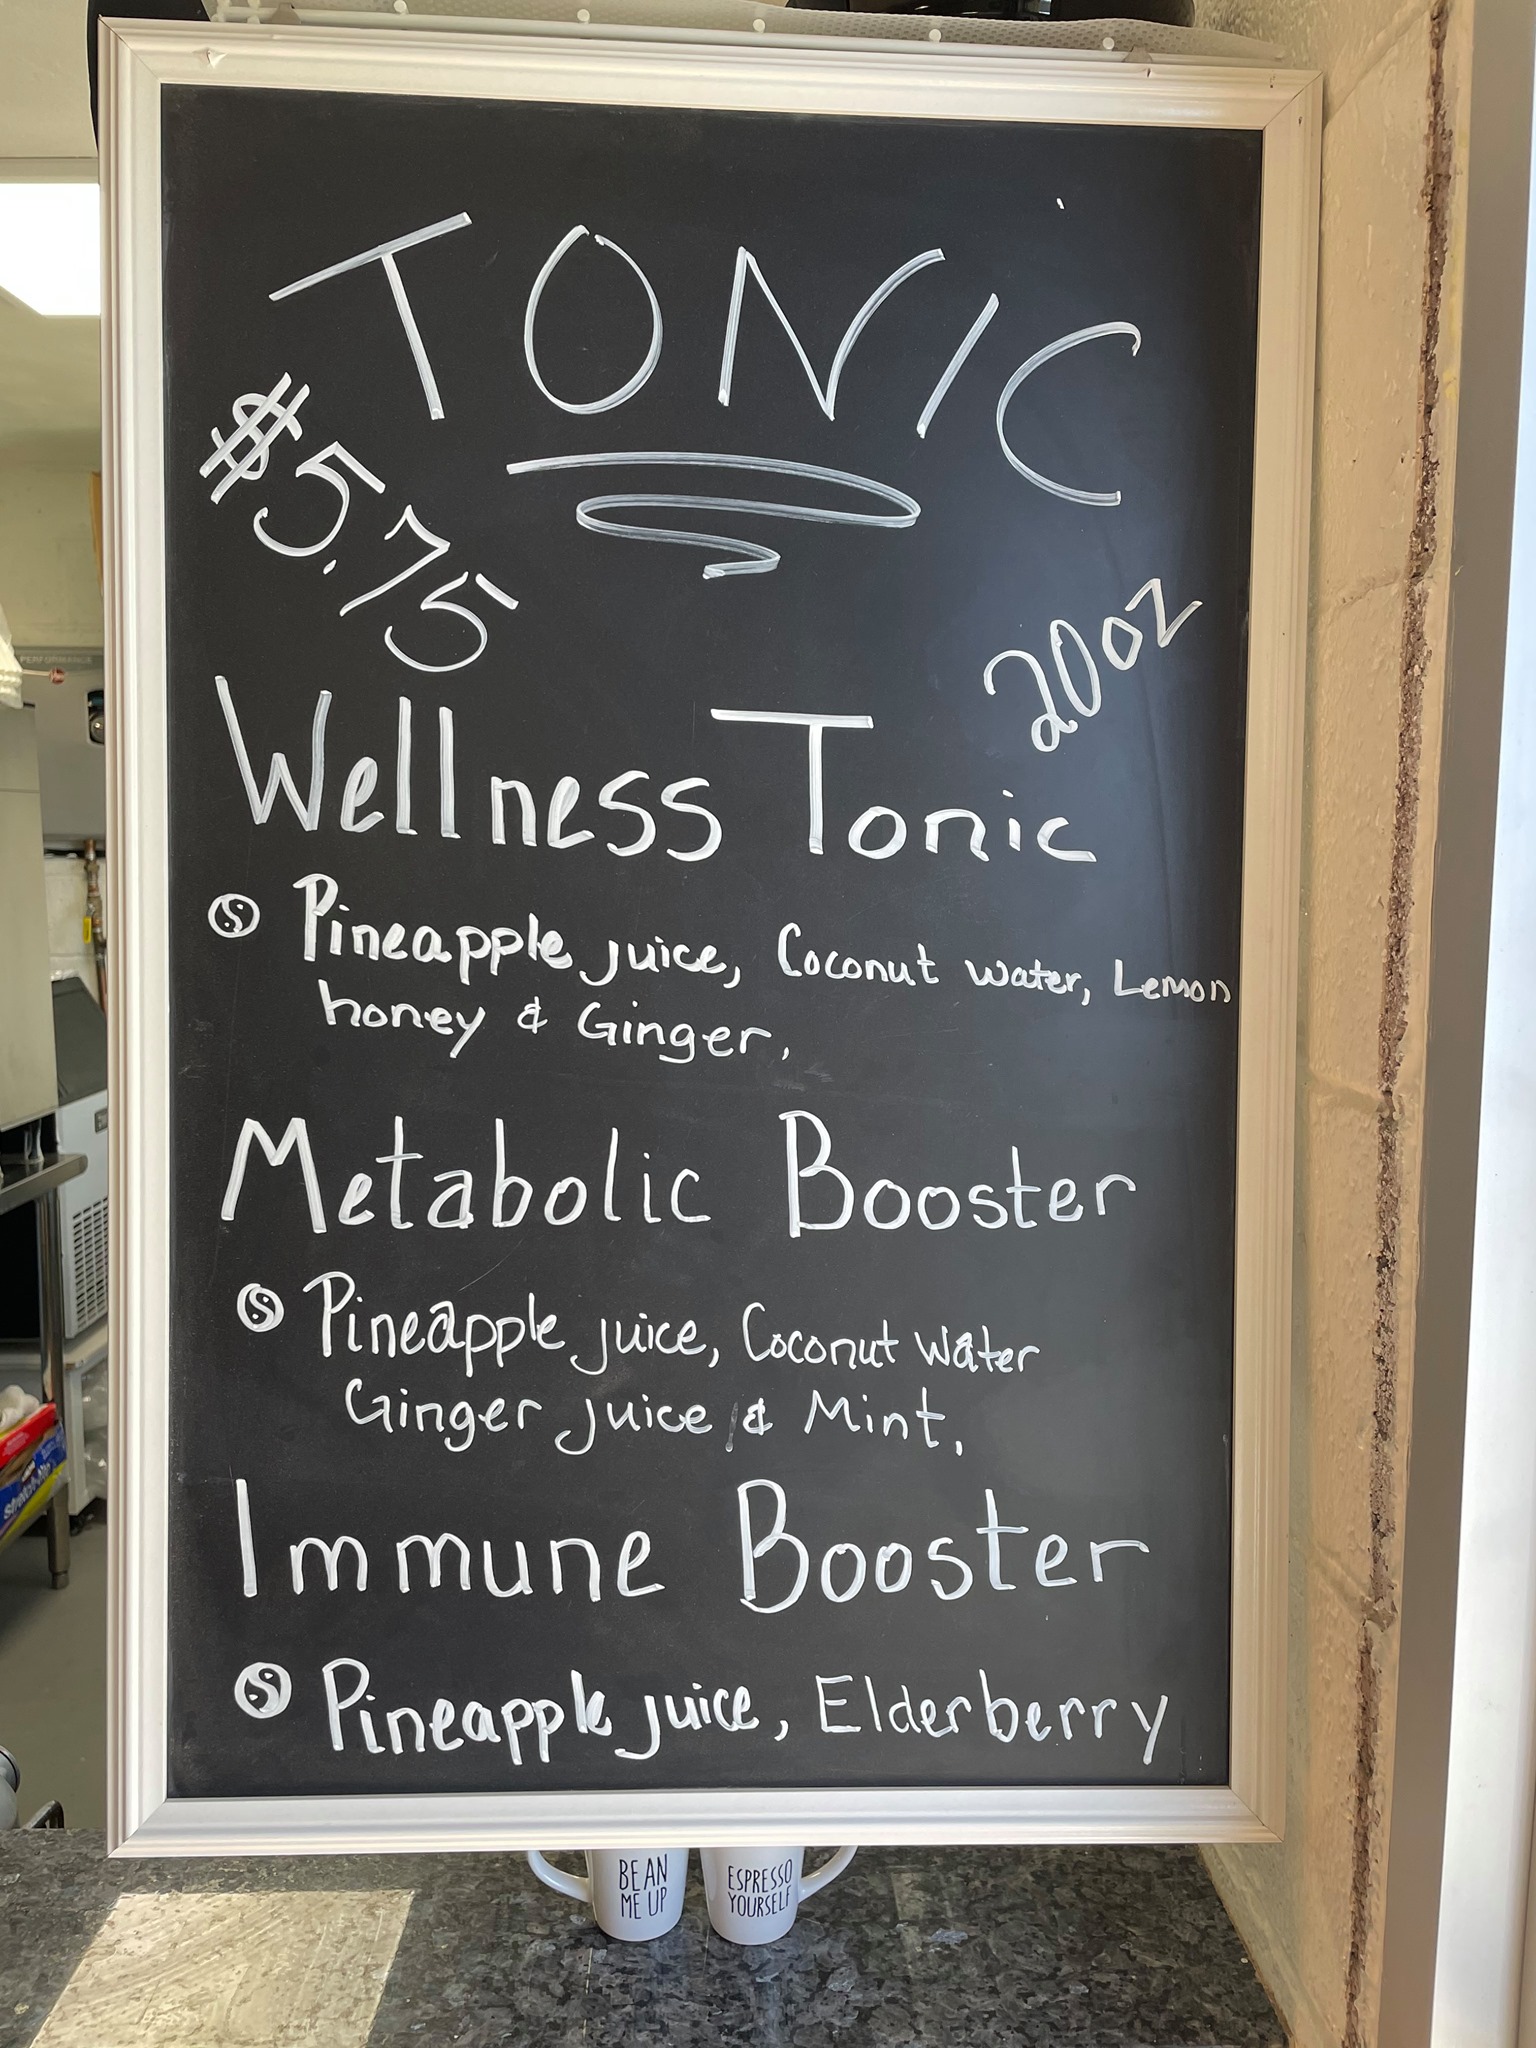 TONIC
$5.75
20oz
Wellness Tonic
Pineapple juice, Coconut water, Lemon
honey & Ginger.
Metabolic Booster
Pineapple juice, Coconut water
Ginger juice, & Mint.
Immune Booster
Pineapple juice, Elderberry
BEAN
ME UP
ESPRESSO
YOURSELF
PERFORMANCE
Stretch-tite